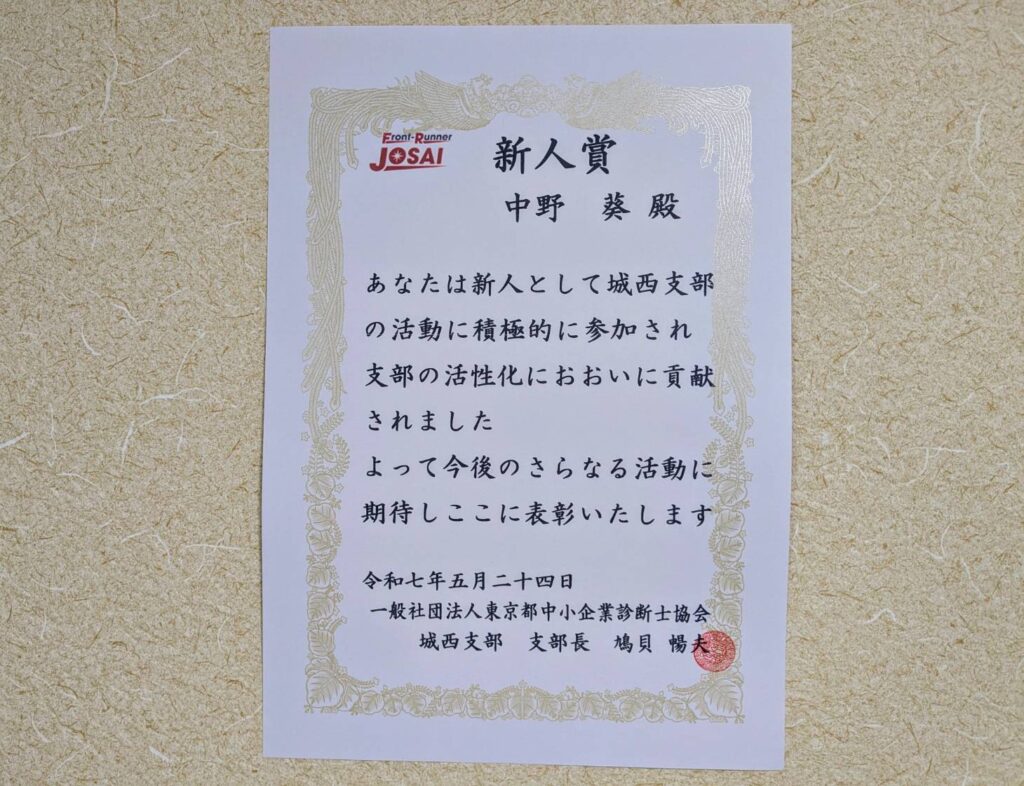 Front-Runner
JOSAI
新人賞
中野 葵 殿
あなたは新人として城西支部
の活動に積極的に参加され
支部の活性化におおいに貢献
されました
よって今後のさらなる活動に
期待しここに表彰いたします
令和七年五月二十四日
一般社団法人東京都中小企業診断士協会
城西支部 支部長 鳩貝 暢夫